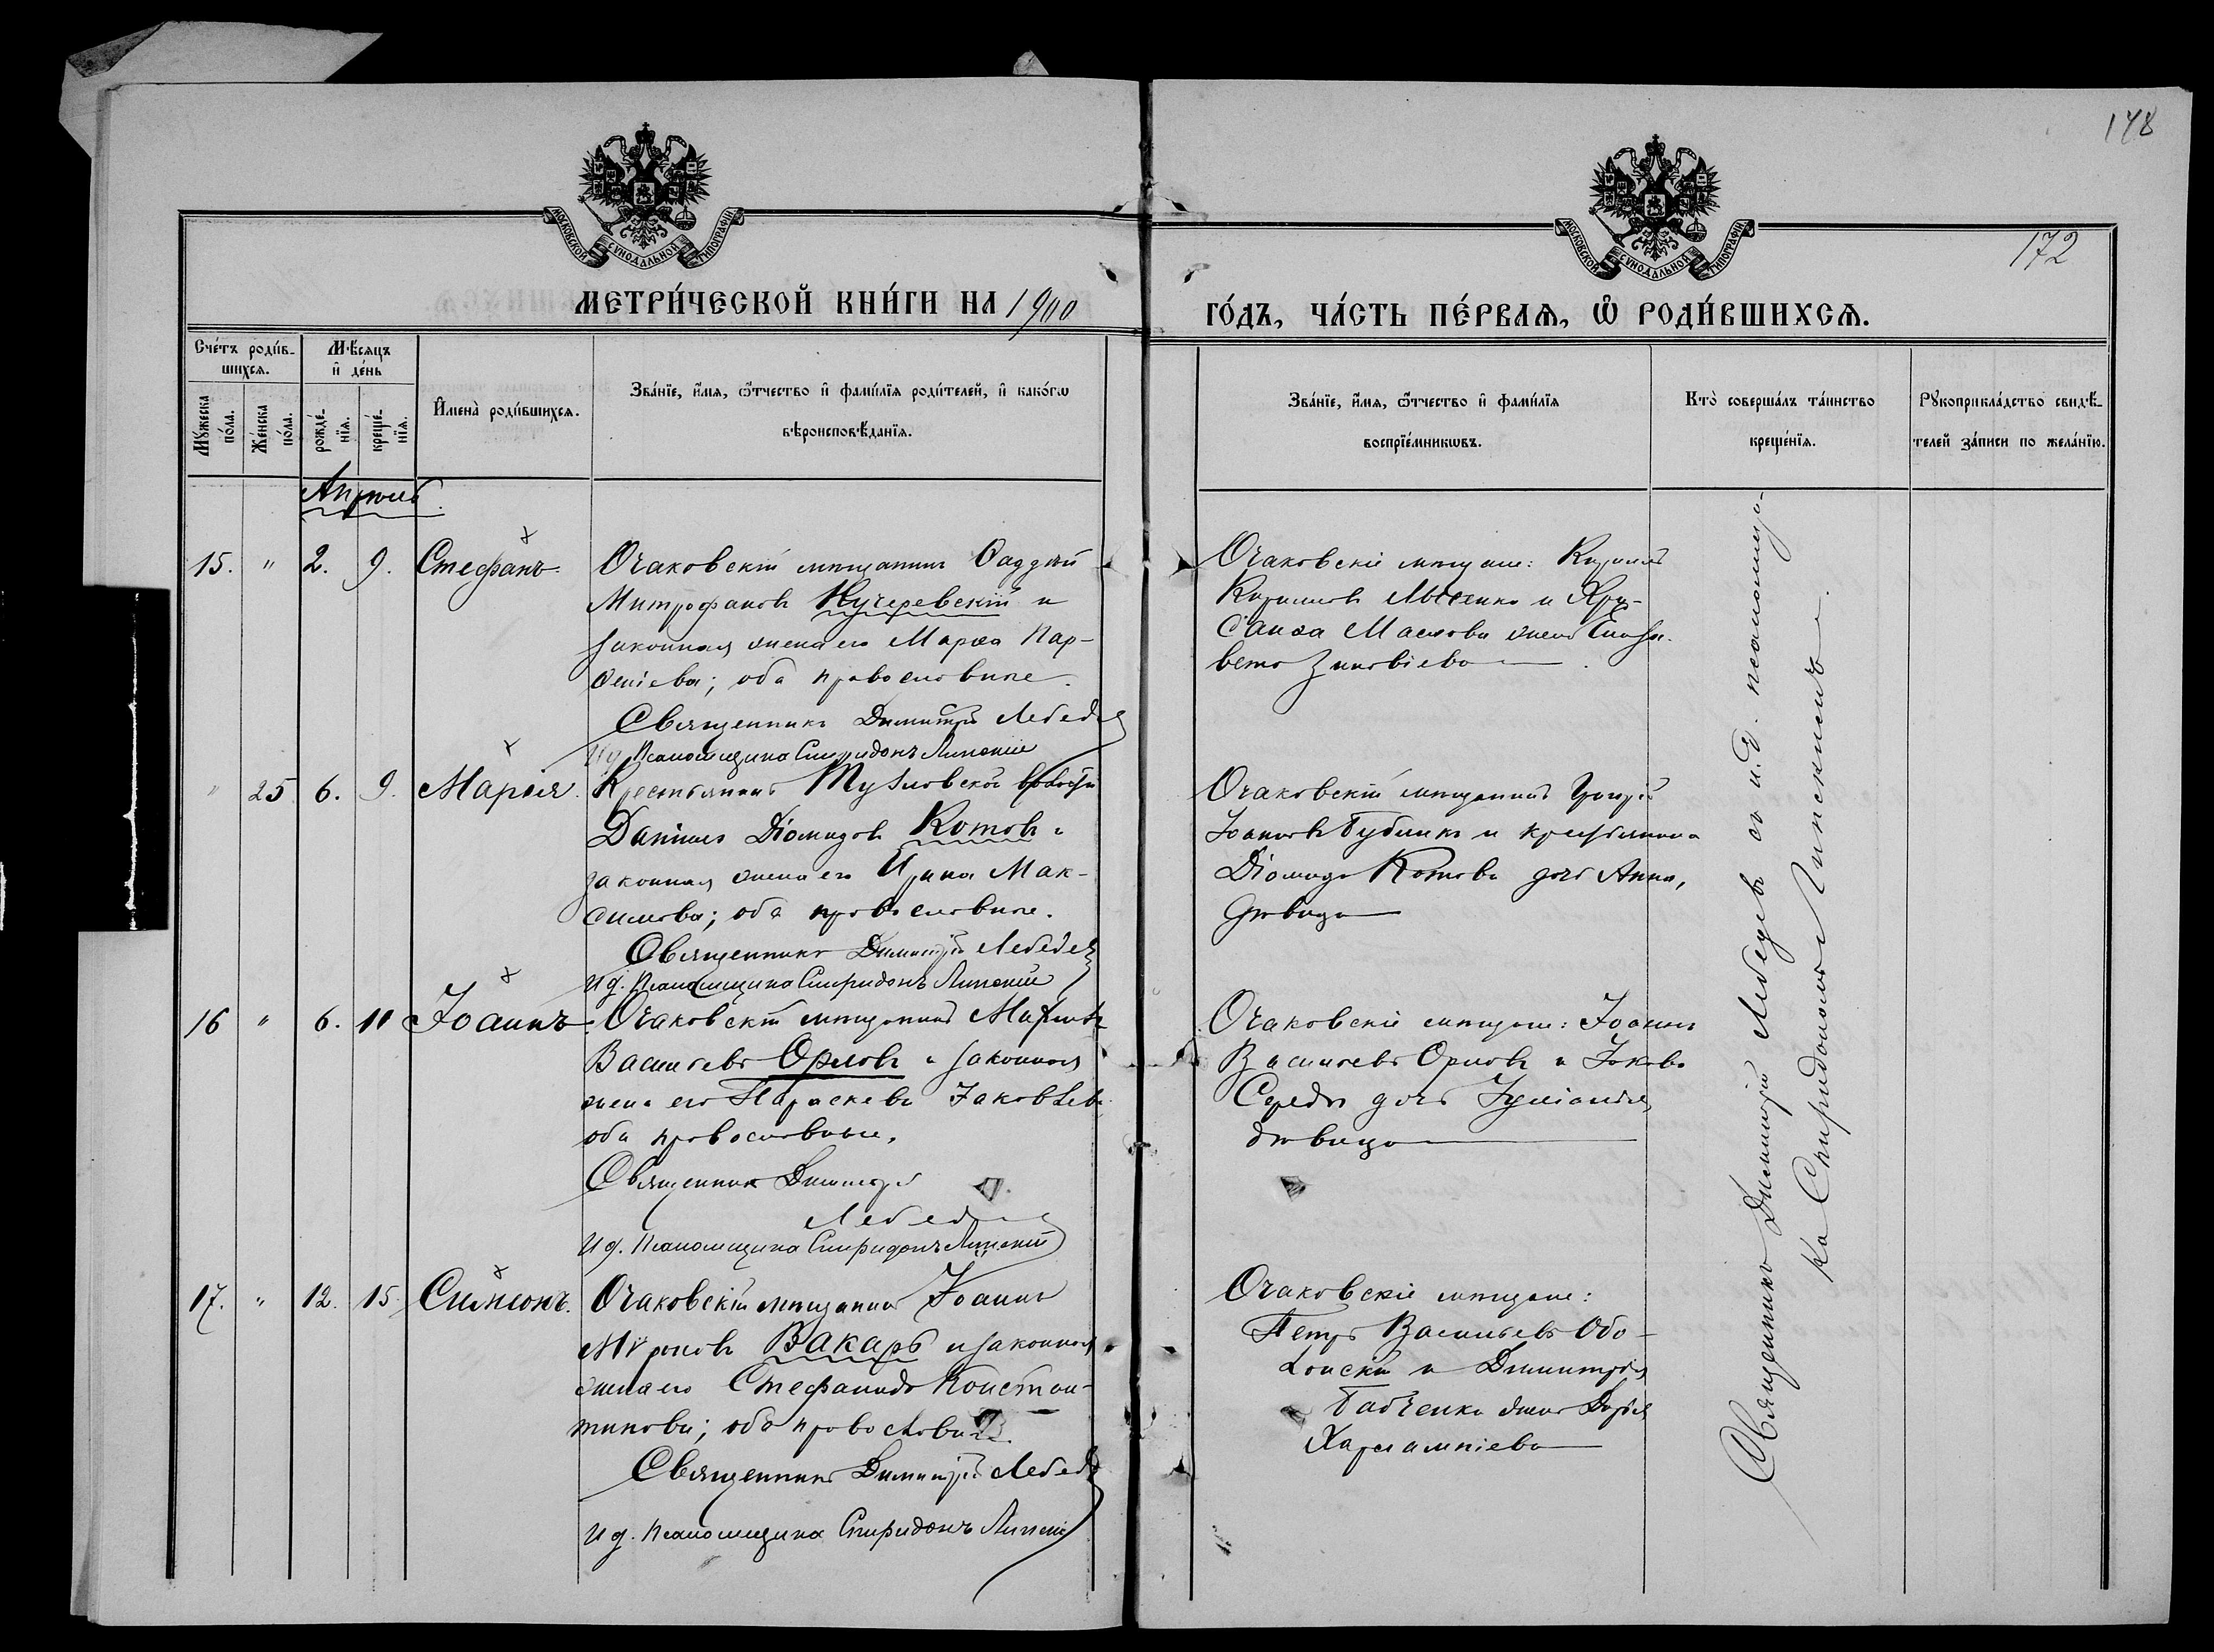 178
172
МОСКОВСКОЙ СѴНОДАЛЬНОЙ ТИПОГРАФІИ.
МОСКОВСКОЙ СѴНОДАЛЬНОЙ ТИПОГРАФІИ.
МЕТРИ́ЧЕСКОЙ КНИ́ГИ НА 1900
ГО́ДЪ, ЧА́СТЬ ПЕ́РВАѦ, Ѡ҆ РОДИ́ВШИХСѦ.
Сче́тъ роди́в-
шихсѧ.
Мꙋ́жеска по́ла.
Же́нска по́ла.
Мѣ́сѧцъ
и҆ де́нь
рожде́-
нїѧ.
креще́-
нїѧ.
И҆мена̀ роди́вшихсѧ.
Зва́нїе, и҆́мѧ, ѻ҆́тчество и҆ фами́лїѧ роди́телей, и҆ како́гѡ
вѣроисповѣ́данїѧ.
Зва́нїе, и҆́мѧ, ѻ҆́тчество и҆ фами́лїѧ
воспрїе́мникѡвъ.
Кто̀ соверша́лъ та́инство
креще́нїѧ.
Рꙋкоприкла́дство свидѣ́-
телей за́писи по жела́нїю.
Апрѣль.
15. " 2. 9. Стефанъ.
Очаковскій мѣщанинъ Ѳаддѣй
Митрофановъ Кучеревскій и
законная жена его Марѳа Пар-
ѳеніева; оба православные.
Священникъ Димитрій Лебедевъ
И д. Псаломщика Спиридонъ Липскій
Очаковскіе мѣщане: Кириллъ
Кирилловъ Лысенко и
Маслова жена Елиса-
вета Зиновіева.
" 25 6. 9. Марія.
Крестьянинъ Тузловской волости
Даніилъ Діомидовъ Котовъ и
законная жена его Ирина Мак-
симова; оба православные.
Священникъ Димитрій Лебедевъ
И д. Псаломщика Спиридонъ Липскій
Очаковскій мѣщанинъ
Іоанновъ Бубликъ и крестьянина
Діомида Котова дочь Анна,
дѣвица
16 " 6. 10 Іоаннъ
Очаковскій мѣщанинъ
Васильевъ Орловъ и законная
жена его Параскева Іаковлева
оба православные.
Священникъ Димитрій
Лебедевъ
И д. Псаломщика Спиридонъ Липскій
Очаковскіе мѣщане: Іоаннъ
Васильевъ Орловъ и Іакова
Середы дочь Іуліанія,
дѣвица
17. " 12. 15. Симеонъ.
Очаковскій мѣщанинъ Іоаннъ
Мѵроновъ Вакарь и законная
жена его Стефанида Констан-
тинова; оба православные.
Священникъ Димитрій Лебедевъ
И д. Псаломщика Спиридонъ Липскій
Очаковскіе мѣщане:
Петръ Васильевъ Обо-
лонскій и Димитрія
Бабченка жена Дарія
Харлампіева
Священникъ Димитрій Лебедевъ съ и. д. псаломщи-
ка Спиридономъ Липскимъ.